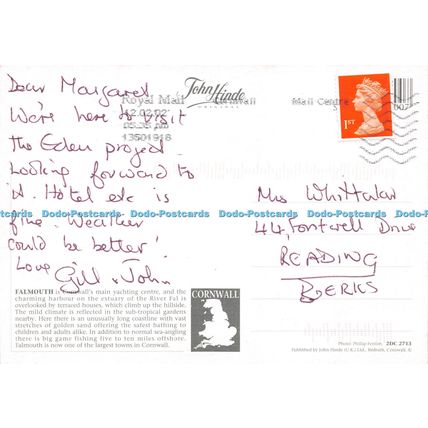 Dear Margaret
We're here to visit
the Eden project
Looking forward to
it. Hotel etc is
fine. Weather
could be better!
Love Gill & John
John Hinde
ORIGINAL
Royal Mail Cornwall Mail Centre
13501918
1ST
007
Mrs Whittaker
44, Fontwell Drive
READING
BERKS
Dodo-Postcards Dodo-Postcards Dodo-Postcards Dodo-Postcards Dodo-Postcards
FALMOUTH is Cornwall's main yachting centre, and the
charming harbour on the estuary of the River Fal is
overlooked by terraced houses, which climb up the hillside.
The mild climate is reflected in the sub-tropical gardens
nearby. Here there is an unusually long coastline with vast
stretches of golden sand offering the safest bathing to
children and adults alike. In addition to normal sea-angling
there is big game fishing five to ten miles offshore.
Falmouth is now one of the largest towns in Cornwall.
CORNWALL
Photo: Phillip Fenton. 2DC 2713
Published by John Hinde (U.K.) Ltd., Redruth, Cornwall, ©